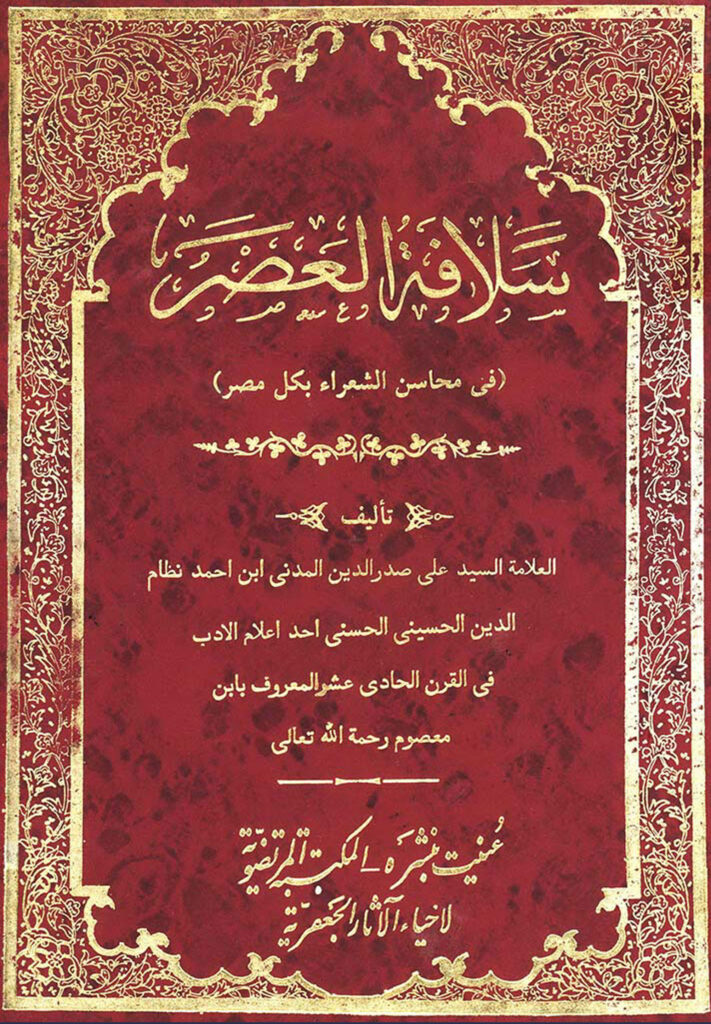 سَلافَةُ العَصَرَ
(فى محاسن الشعراء بكل مصر)
تأليف
العلامة السيد على صدرالدين المدنى ابن احمد نظام
الدين الحسينى الحسنى احد اعلام الادب
فى القرن الحادى عشرالمعروف بابن
معصوم رحمة الله تعالى
عُنيت بنشره المكتبة المرتضويّة
لاحياء الآثار الجعفريّة